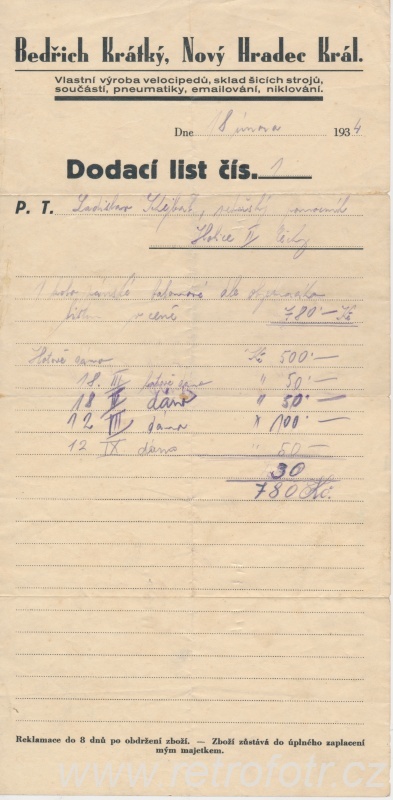 Bedřich Krátký, Nový Hradec Král.
Vlastní výroba velocipedů, sklad šicích strojů,
součástí, pneumatiky, emailování, niklování.
Dne 18 února 1934
Dodací list čís. 1
P. T. Ladislav
Hořice II
1 kolo dle
v ceně 780·— Kč
Hotově dáno Kč 500·—
18. III hotově dáno " 50·—
18 dáno " 50·—
12 III dáno " 100·—
12 IX dáno " 50—
30
780 Kč.
Reklamace do 8 dnů po obdržení zboží. — Zboží zůstává do úplného zaplacení
mým majetkem.
www.retrofotr.cz